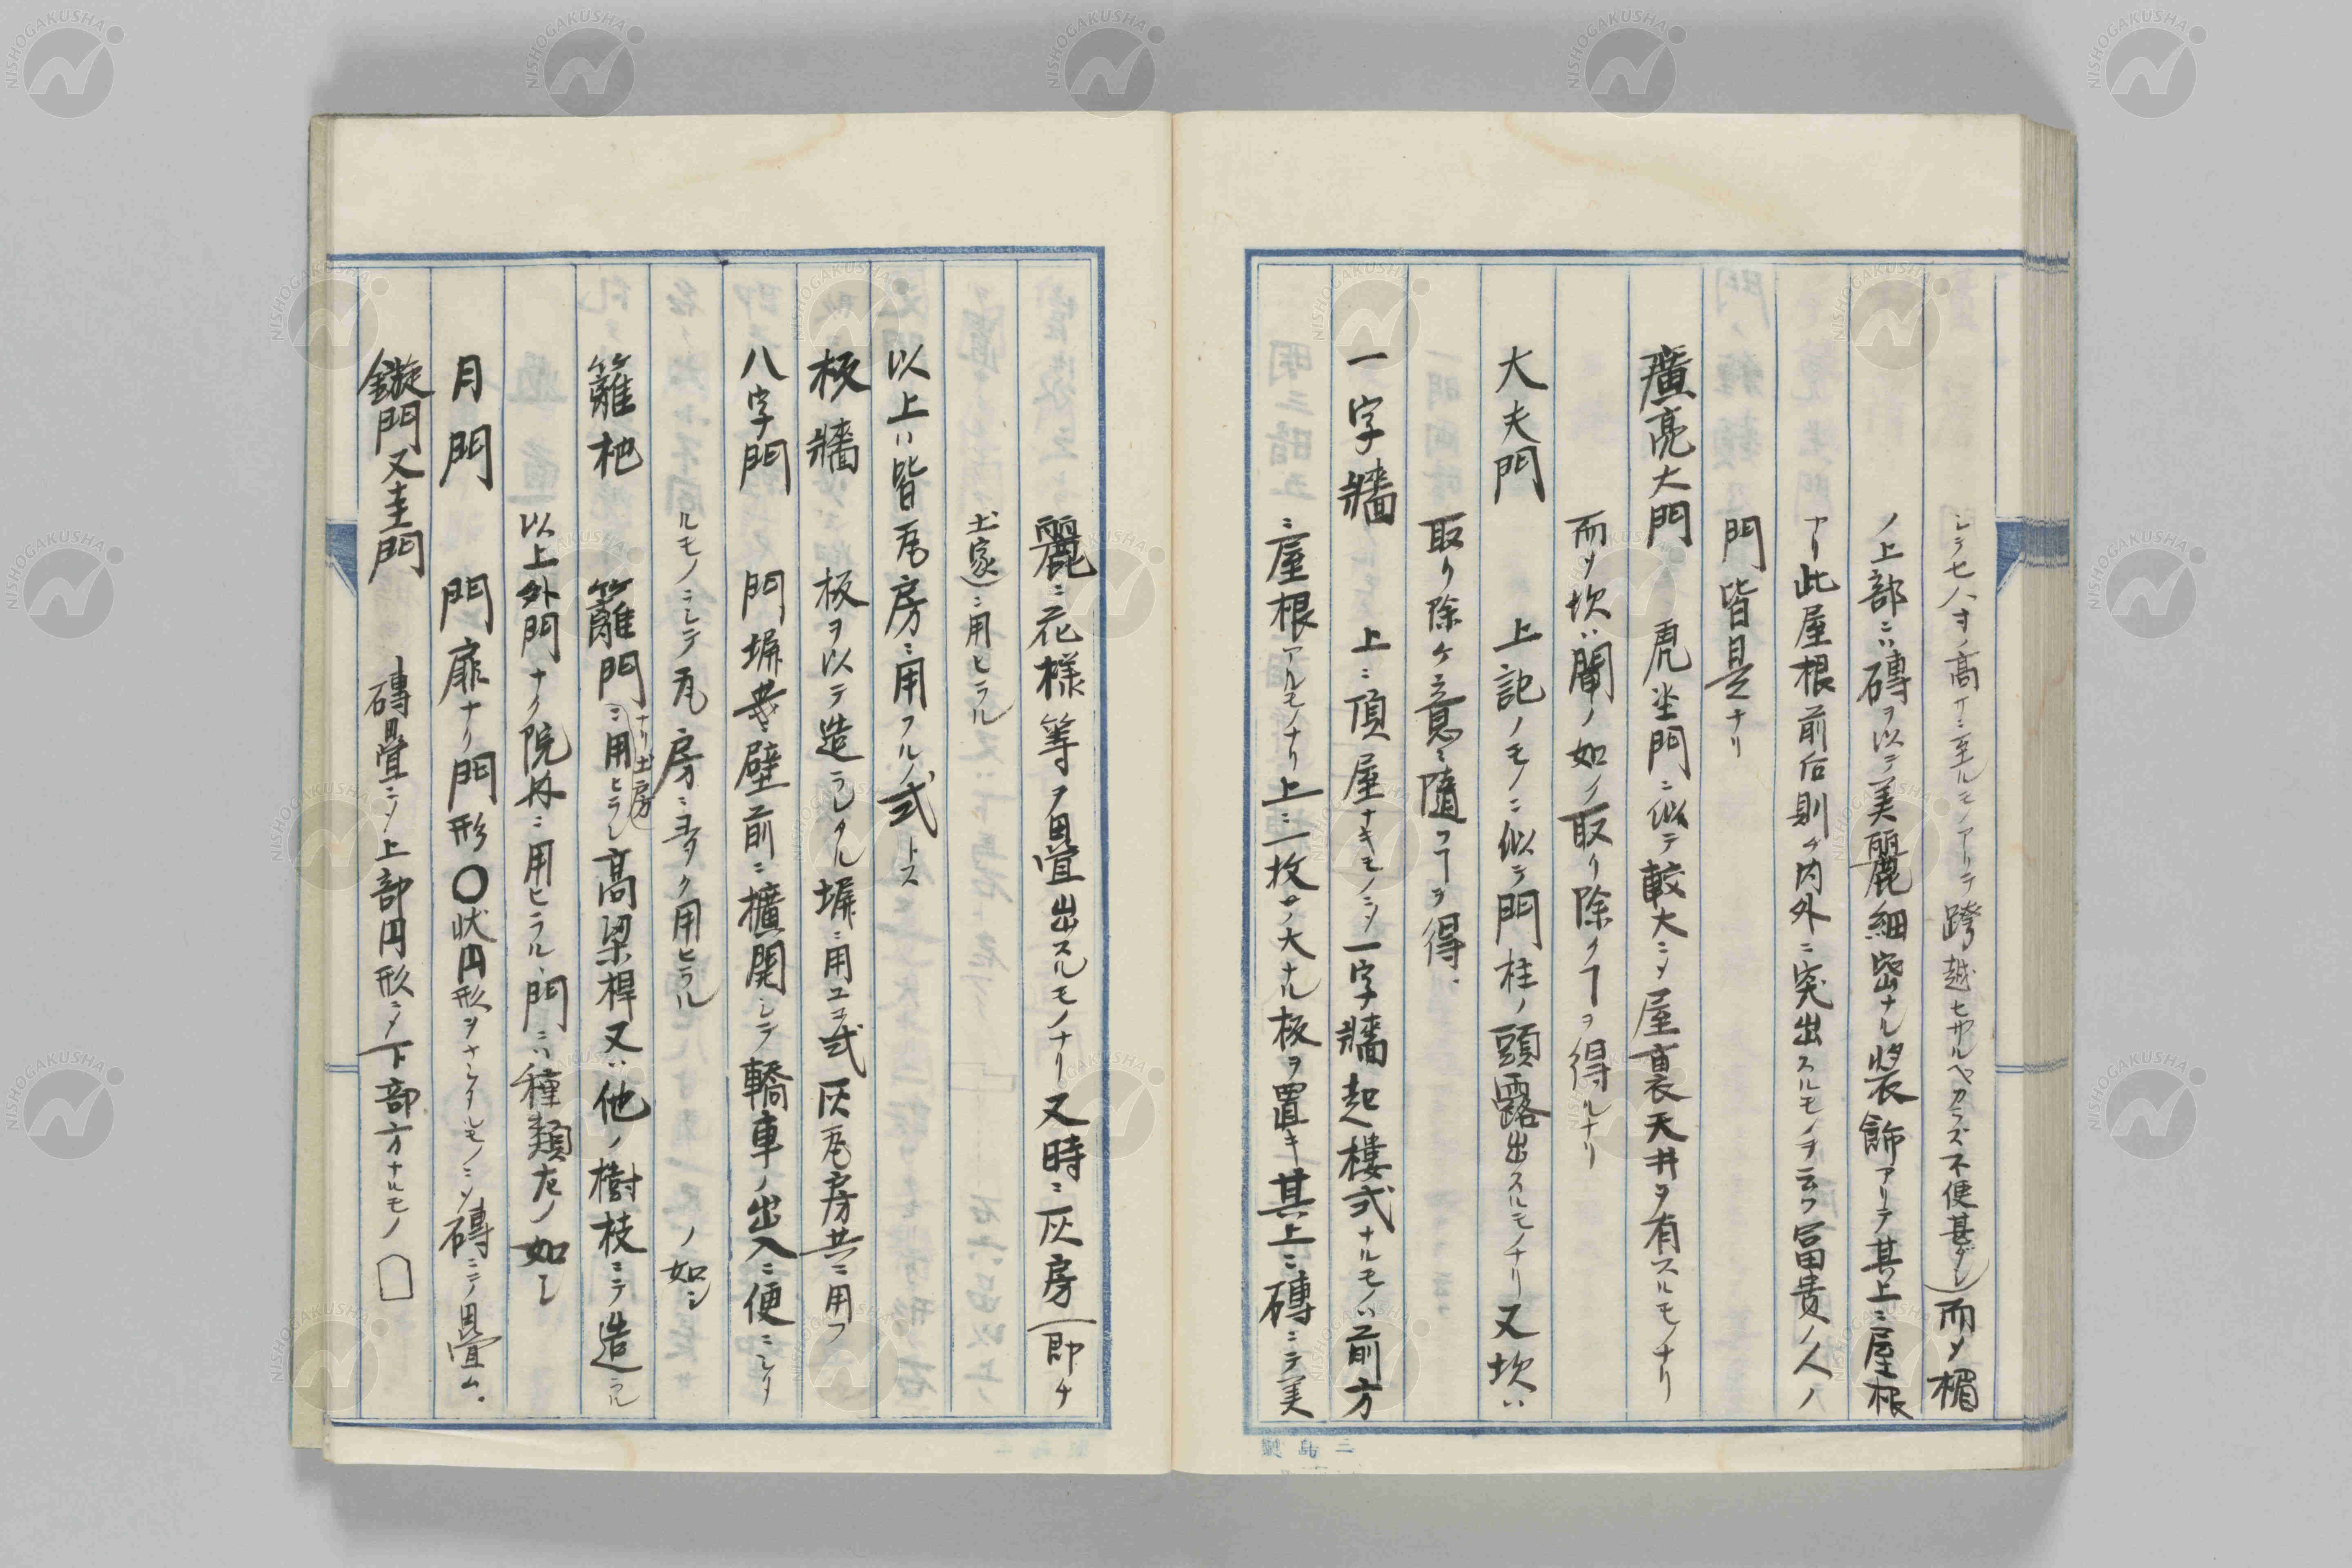 シテ七八寸ノ高サニ至ルモノアリテ跨越セザルベカラズ不便甚ダシ)而ソ楣
ノ上部ニハ磚ヲ以テ美麗細密ナル装飾アリテ其上ニ屋根
アリ此屋根前后則チ内外ニ突出スルモノヲ云フ富貴ノ人ノ
門皆是ナリ
廣亮大門 虎坐門ニ似テ較大ニソ屋裏天井ヲ有スルモノナリ
而ソ坎ハ閘ノ如ク取リ除クヿヲ得ルナリ
大夫門 上記ノモノニ似テ門柱ノ頭露出スルモノナリ又坎ハ
取リ除ケ意ニ随フヿヲ得.
一字牆 上ニ頂屋ナキモノニソ一字牆起樓式ナルモノハ前方
ニ屋根アルモノナリ上ニ一枚ノ大ナル板ヲ置キ其上ニ磚ニテ美
麗ニ花様等ヲ畳出スルモノナリ又時ニ灰房(即チ
土家)ニ用ヒラル
以上ハ皆瓦房ニ用フルノ式トス
板牆 板ヲ以テ造ラレタル塀ニ用ユ式灰瓦房共ニ用フ
八字門 門塀共壁前ニ擴開シテ轎車ノ出入ニ便ニシタ
ルモノニシテ瓦房ニ多ク用ヒラル ノ如シ
籬杷 籬門ナリ土房ニ用ヒラレ高梁桿又ハ他ノ樹枝ニテ造ラル
以上外門ナク院内ニ用ヒラル、門ニハ種類左ノ如シ
月門 門扉ナリ門形〇状円形ヲナシタルモノニソ磚ニテ畳ム.
鏇門又圭門 磚畳ニソ上部円形ニソ下部方ナルモノ